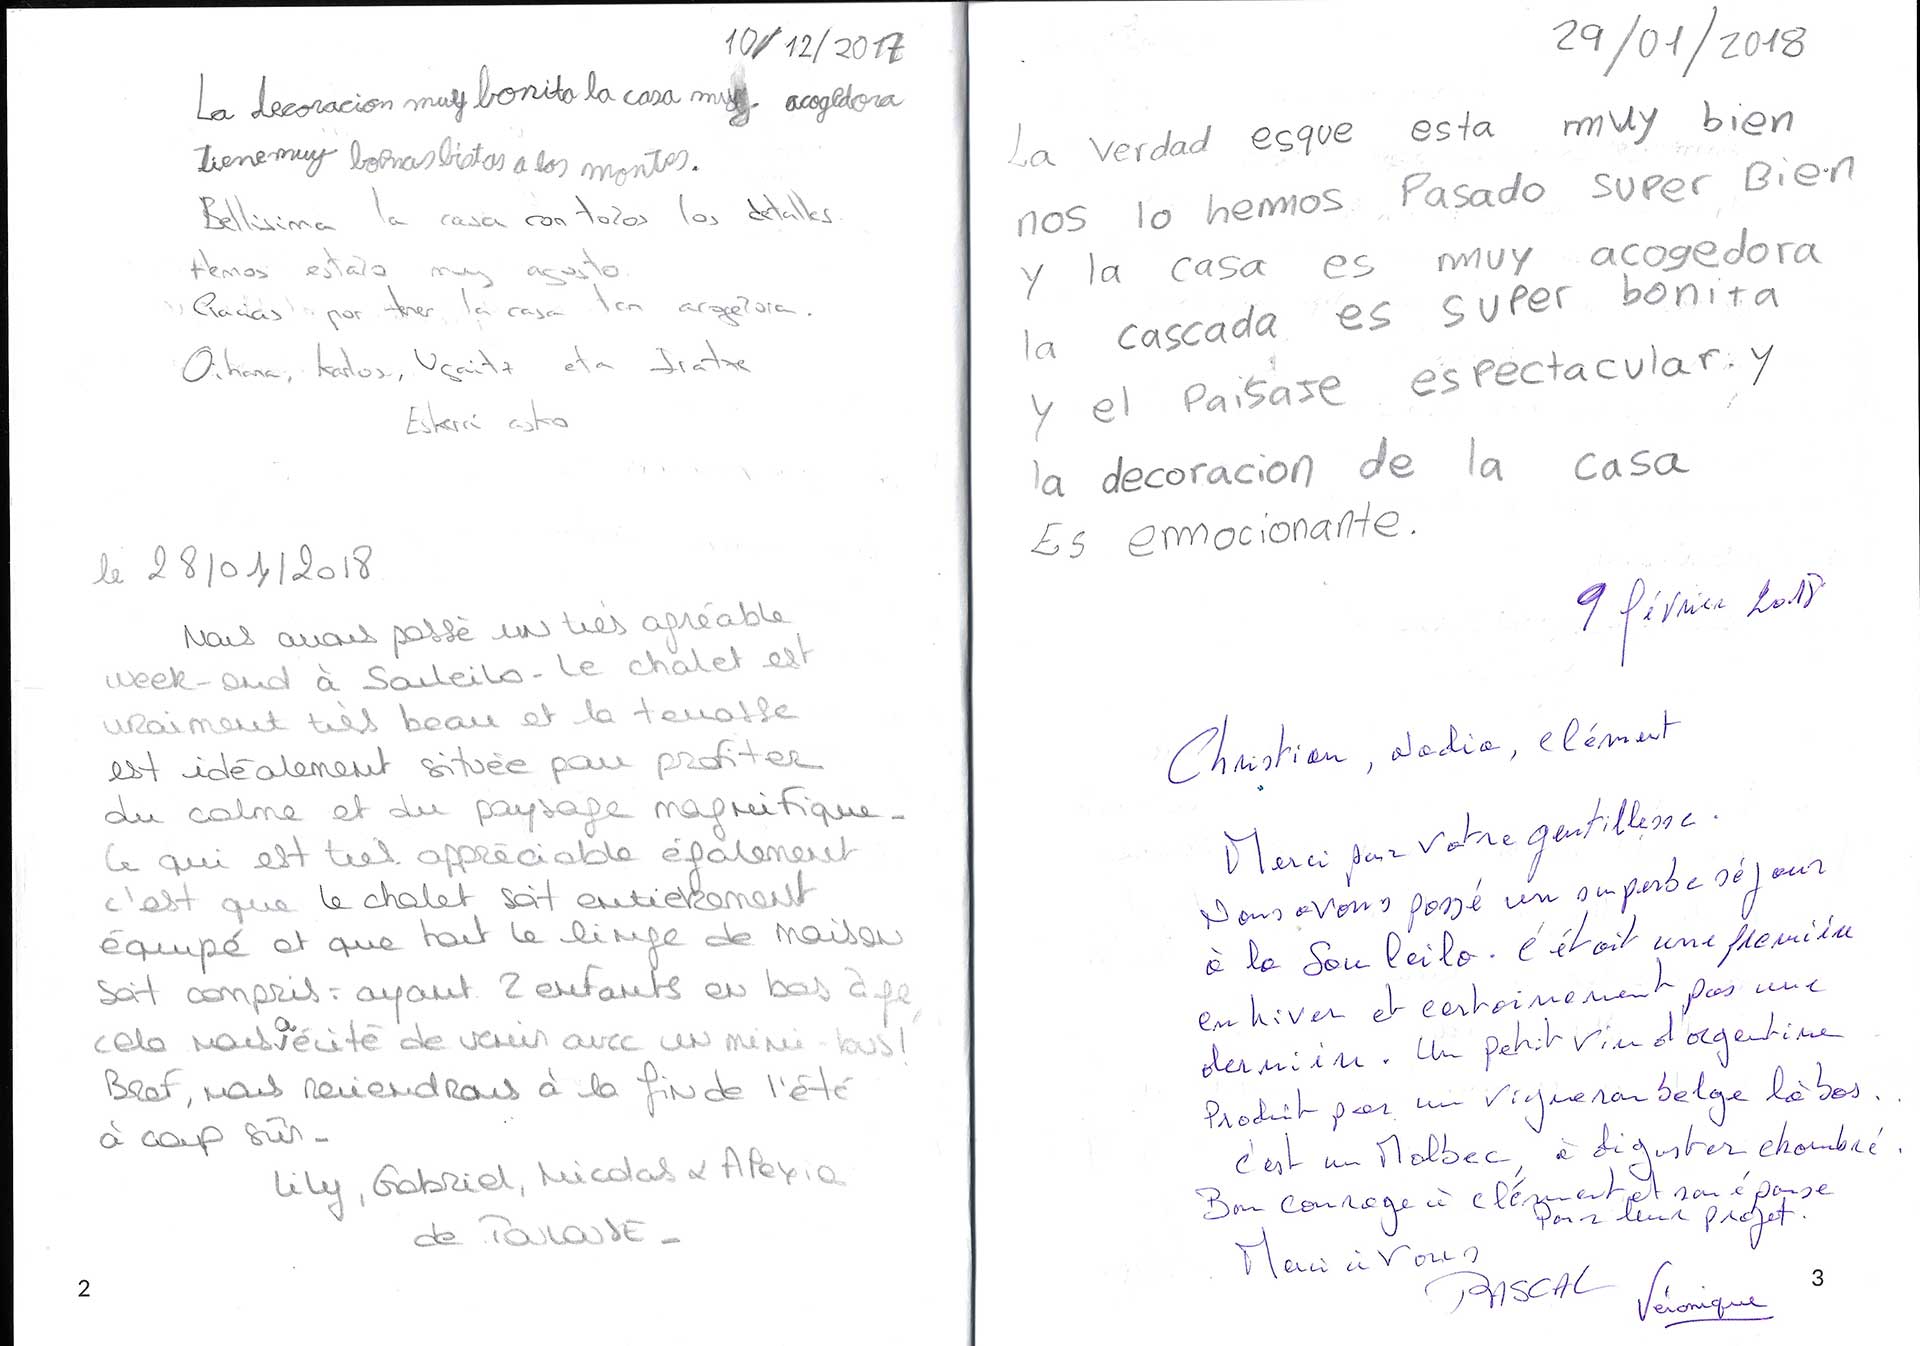 10/12/2017
La decoracion muy bonita la casa muy. acogedora
tiene muy buenas bistas a los montes.
Bellisima la casa con todos los detalles.
Hemos estado muy agusto.
Gracias por tener la casa tan acogedora.
Oihana, Karlos, Ugaitz eta Iratxe
Eskerri asko
le 28/01/2018
Nous avons passé un très agréable
week-end à Souleilo - Le chalet est
vraiment très beau et la terrasse
est idéalement située pour profiter
du calme et du paysage magnifique -
Ce qui est très appréciable également
c'est que le chalet soit entièrement
équipé et que tout le linge de maison
soit compris - ayant 2 enfants en bas âge,
cela nous a évité de venir avec un mini-bus!
Bref, nous reviendrons à la fin de l'été
à coup sûr -
Lily, Gabriel, Nicolas & Alexia
de Toulouse -
2
29/01/2018
La verdad esque esta muy bien
nos lo hemos Pasado super Bien
y la casa es muy acogedora
la cascada es super bonita
y el Paisaje espectacular. y
la decoracion de la casa
Es emocionante.
9 février 2018
Christian, Nadia, Clément
Merci pour votre gentillesse.
Nous avons passé un superbe séjour
à la Souleilo. C'était une première
en hiver et certainement pas une
dernière. Un petit vin d'argentine
Produit par un vigneron belge là bas.
C'est un Malbec, à diguster chambré.
Bon courage à Clément et son épouse
pour leur projet.
Merci à vous
PASCAL Véronique
3